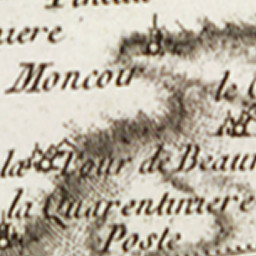 niere
Moncou
le
la Tour de Beau
la Quarentiniere
Poste